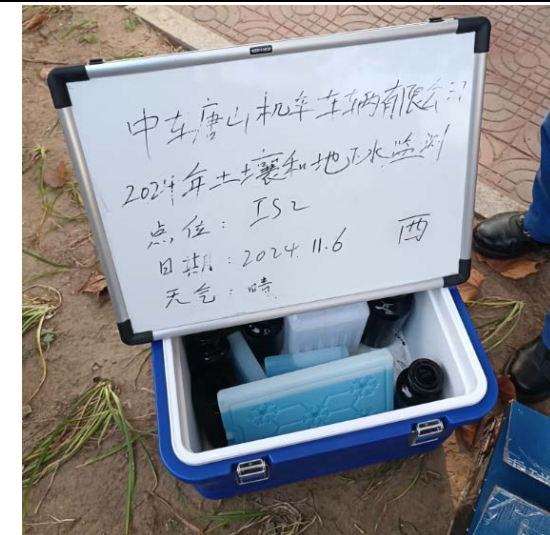 中车唐山机车车辆有限公司
2024年土壤和地下水监测
点位：IS2
日期：2024.11.6 西
天气：晴